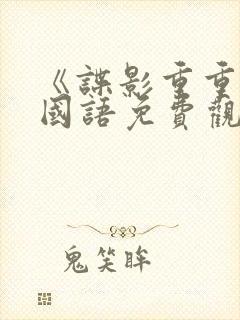 《諜影重重
國語免費觀
鬼笑眸